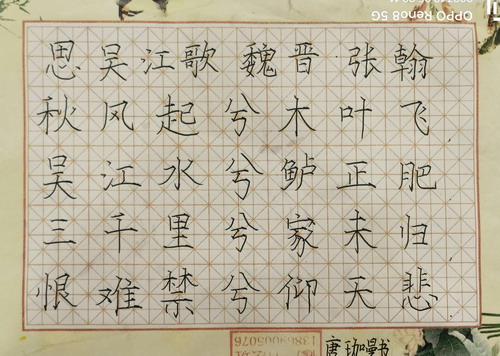 OPPO Reno8 5G
思吴江歌 魏晋 张翰
秋风起兮木叶飞
吴江水兮鲈正肥
三千里兮家未归
恨难禁兮仰天悲
13869005076
唐珈曼书